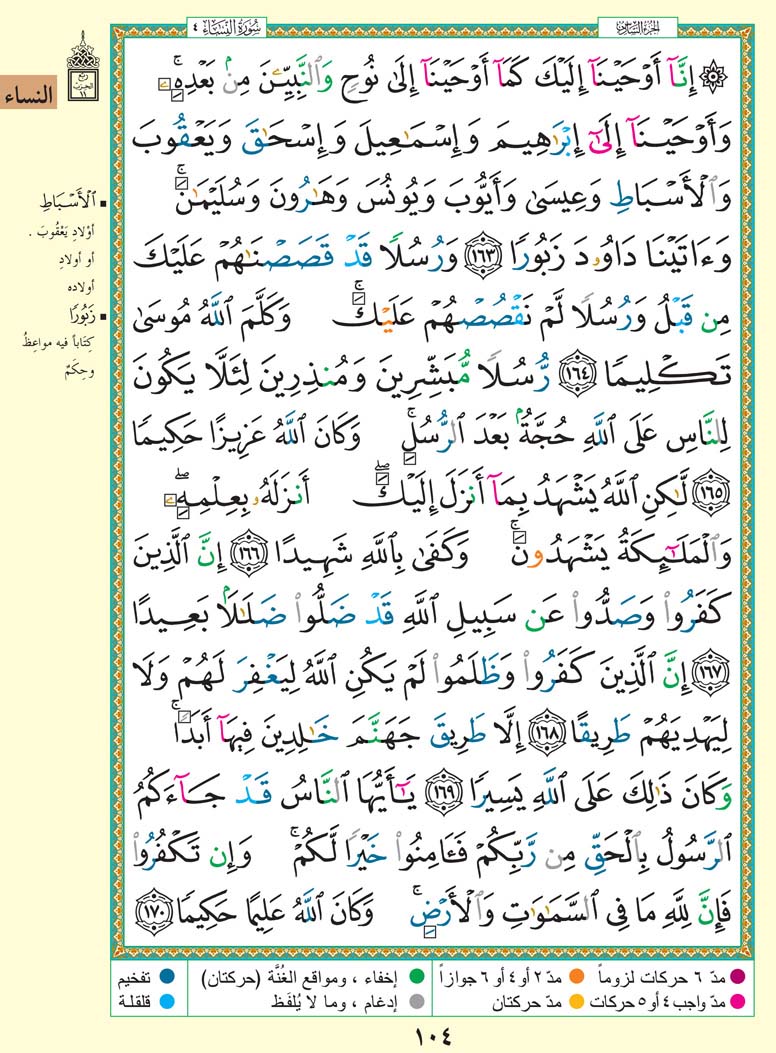 سُورَةُ النِّسَاءِ ٤
الجُزءُ السَّادِسُ
ربع
الحزب
١١
النساء
۞ إِنَّآ أَوْحَيْنَآ إِلَيْكَ كَمَآ أَوْحَيْنَآ إِلَىٰ نُوحٍ وَٱلنَّبِيِّـۧنَ مِنۢ بَعْدِهِۦۚ
وَأَوْحَيْنَآ إِلَىٰٓ إِبْرَٰهِيمَ وَإِسْمَـٰعِيلَ وَإِسْحَـٰقَ وَيَعْقُوبَ
وَٱلْأَسْبَاطِ وَعِيسَىٰ وَأَيُّوبَ وَيُونُسَ وَهَـٰرُونَ وَسُلَيْمَـٰنَۚ
وَءَاتَيْنَا دَاوُۥدَ زَبُورًا ١٦٣ وَرُسُلًا قَدْ قَصَصْنَـٰهُمْ عَلَيْكَ
مِن قَبْلُ وَرُسُلًا لَّمْ نَقْصُصْهُمْ عَلَيْكَۚ وَكَلَّمَ ٱللَّهُ مُوسَىٰ
تَكْلِيمًا ١٦٤ رُّسُلًا مُّبَشِّرِينَ وَمُنذِرِينَ لِئَلَّا يَكُونَ
لِلنَّاسِ عَلَى ٱللَّهِ حُجَّةٌۢ بَعْدَ ٱلرُّسُلِۚ وَكَانَ ٱللَّهُ عَزِيزًا حَكِيمًا
١٦٥ لَّـٰكِنِ ٱللَّهُ يَشْهَدُ بِمَآ أَنزَلَ إِلَيْكَۖ أَنزَلَهُۥ بِعِلْمِهِۦۖ
وَٱلْمَلَـٰٓئِكَةُ يَشْهَدُونَۚ وَكَفَىٰ بِٱللَّهِ شَهِيدًا ١٦٦ إِنَّ ٱلَّذِينَ
كَفَرُوا۟ وَصَدُّوا۟ عَن سَبِيلِ ٱللَّهِ قَدْ ضَلُّوا۟ ضَلَـٰلًۢا بَعِيدًا
١٦٧ إِنَّ ٱلَّذِينَ كَفَرُوا۟ وَظَلَمُوا۟ لَمْ يَكُنِ ٱللَّهُ لِيَغْفِرَ لَهُمْ وَلَا
لِيَهْدِيَهُمْ طَرِيقًا ١٦٨ إِلَّا طَرِيقَ جَهَنَّمَ خَـٰلِدِينَ فِيهَآ أَبَدًاۚ
وَكَانَ ذَٰلِكَ عَلَى ٱللَّهِ يَسِيرًا ١٦٩ يَـٰٓأَيُّهَا ٱلنَّاسُ قَدْ جَآءَكُمُ
ٱلرَّسُولُ بِٱلْحَقِّ مِن رَّبِّكُمْ فَـَٔامِنُوا۟ خَيْرًا لَّكُمْۚ وَإِن تَكْفُرُوا۟
فَإِنَّ لِلَّهِ مَا فِى ٱلسَّمَـٰوَٰتِ وَٱلْأَرْضِۚ وَكَانَ ٱللَّهُ عَلِيمًا حَكِيمًا ١٧٠
▪ ٱلْأَسْبَاطِ
أوْلادِ يَعْقُوبَ .
أو أولادِ
أولاده
▪ زَبُورًا
كِتَاباً فيه مواعِظُ
وحِكَمٌ
مدّ ٦ حركات لزوماً ● مدّ ٢ أو ٤ أو ٦ جوازاً ● إخفاء ، ومواقع الغُنَّة (حركتان) ● تفخيم
مدّ واجب ٤ أو ٥ حركات ● مدّ حركتان ● إدغام ، وما لا يُلفَظ ● قلقلة
١٠٤